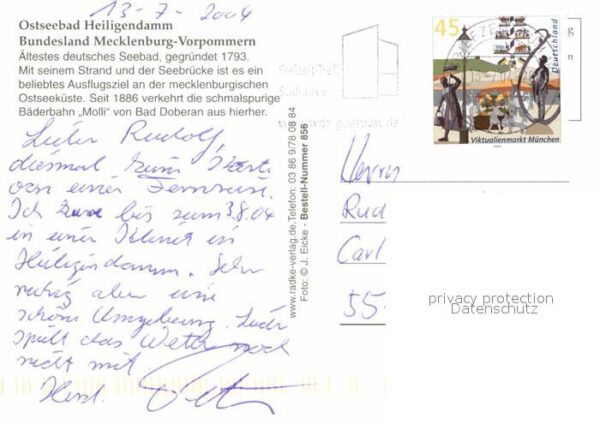 13-7-2004
Ostseebad Heiligendamm
Bundesland Mecklenburg-Vorpommern
Ältestes deutsches Seebad, gegründet 1793.
Mit seinem Strand und der Seebrücke ist es ein
beliebtes Ausflugsziel an der mecklenburgischen
Ostseeküste. Seit 1886 verkehrt die schmalspurige
Bäderbahn „Molli" von Bad Doberan aus hierher.
Lieber Rudolf,
diesmal zum
von einer
Ich bis zum 3.8.04
in einer Klinik in
Heiligendamm. Sehr
ruhig aber eine
schöne Umgebung. Leider
spielt das Wetter noch
nicht mit.
Herzl.
www.radke-verlag.de, Telefon: 03 86 9/78 08 84
Foto: © J. Eicke - Bestell-Nummer 856
45
Deutschland
Viktualienmarkt München
Herrn
Rud
Carl
55
privacy protection
Datenschutz